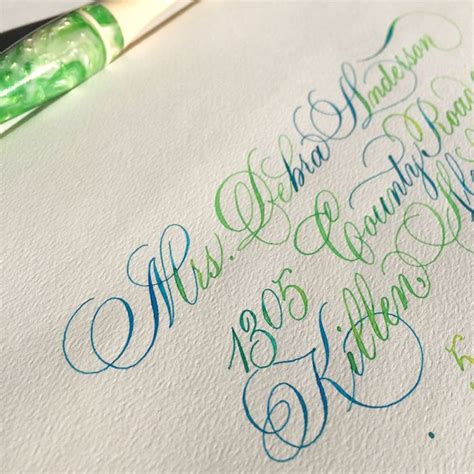 Mrs. Debra Anderson
1305 County Road
Killen